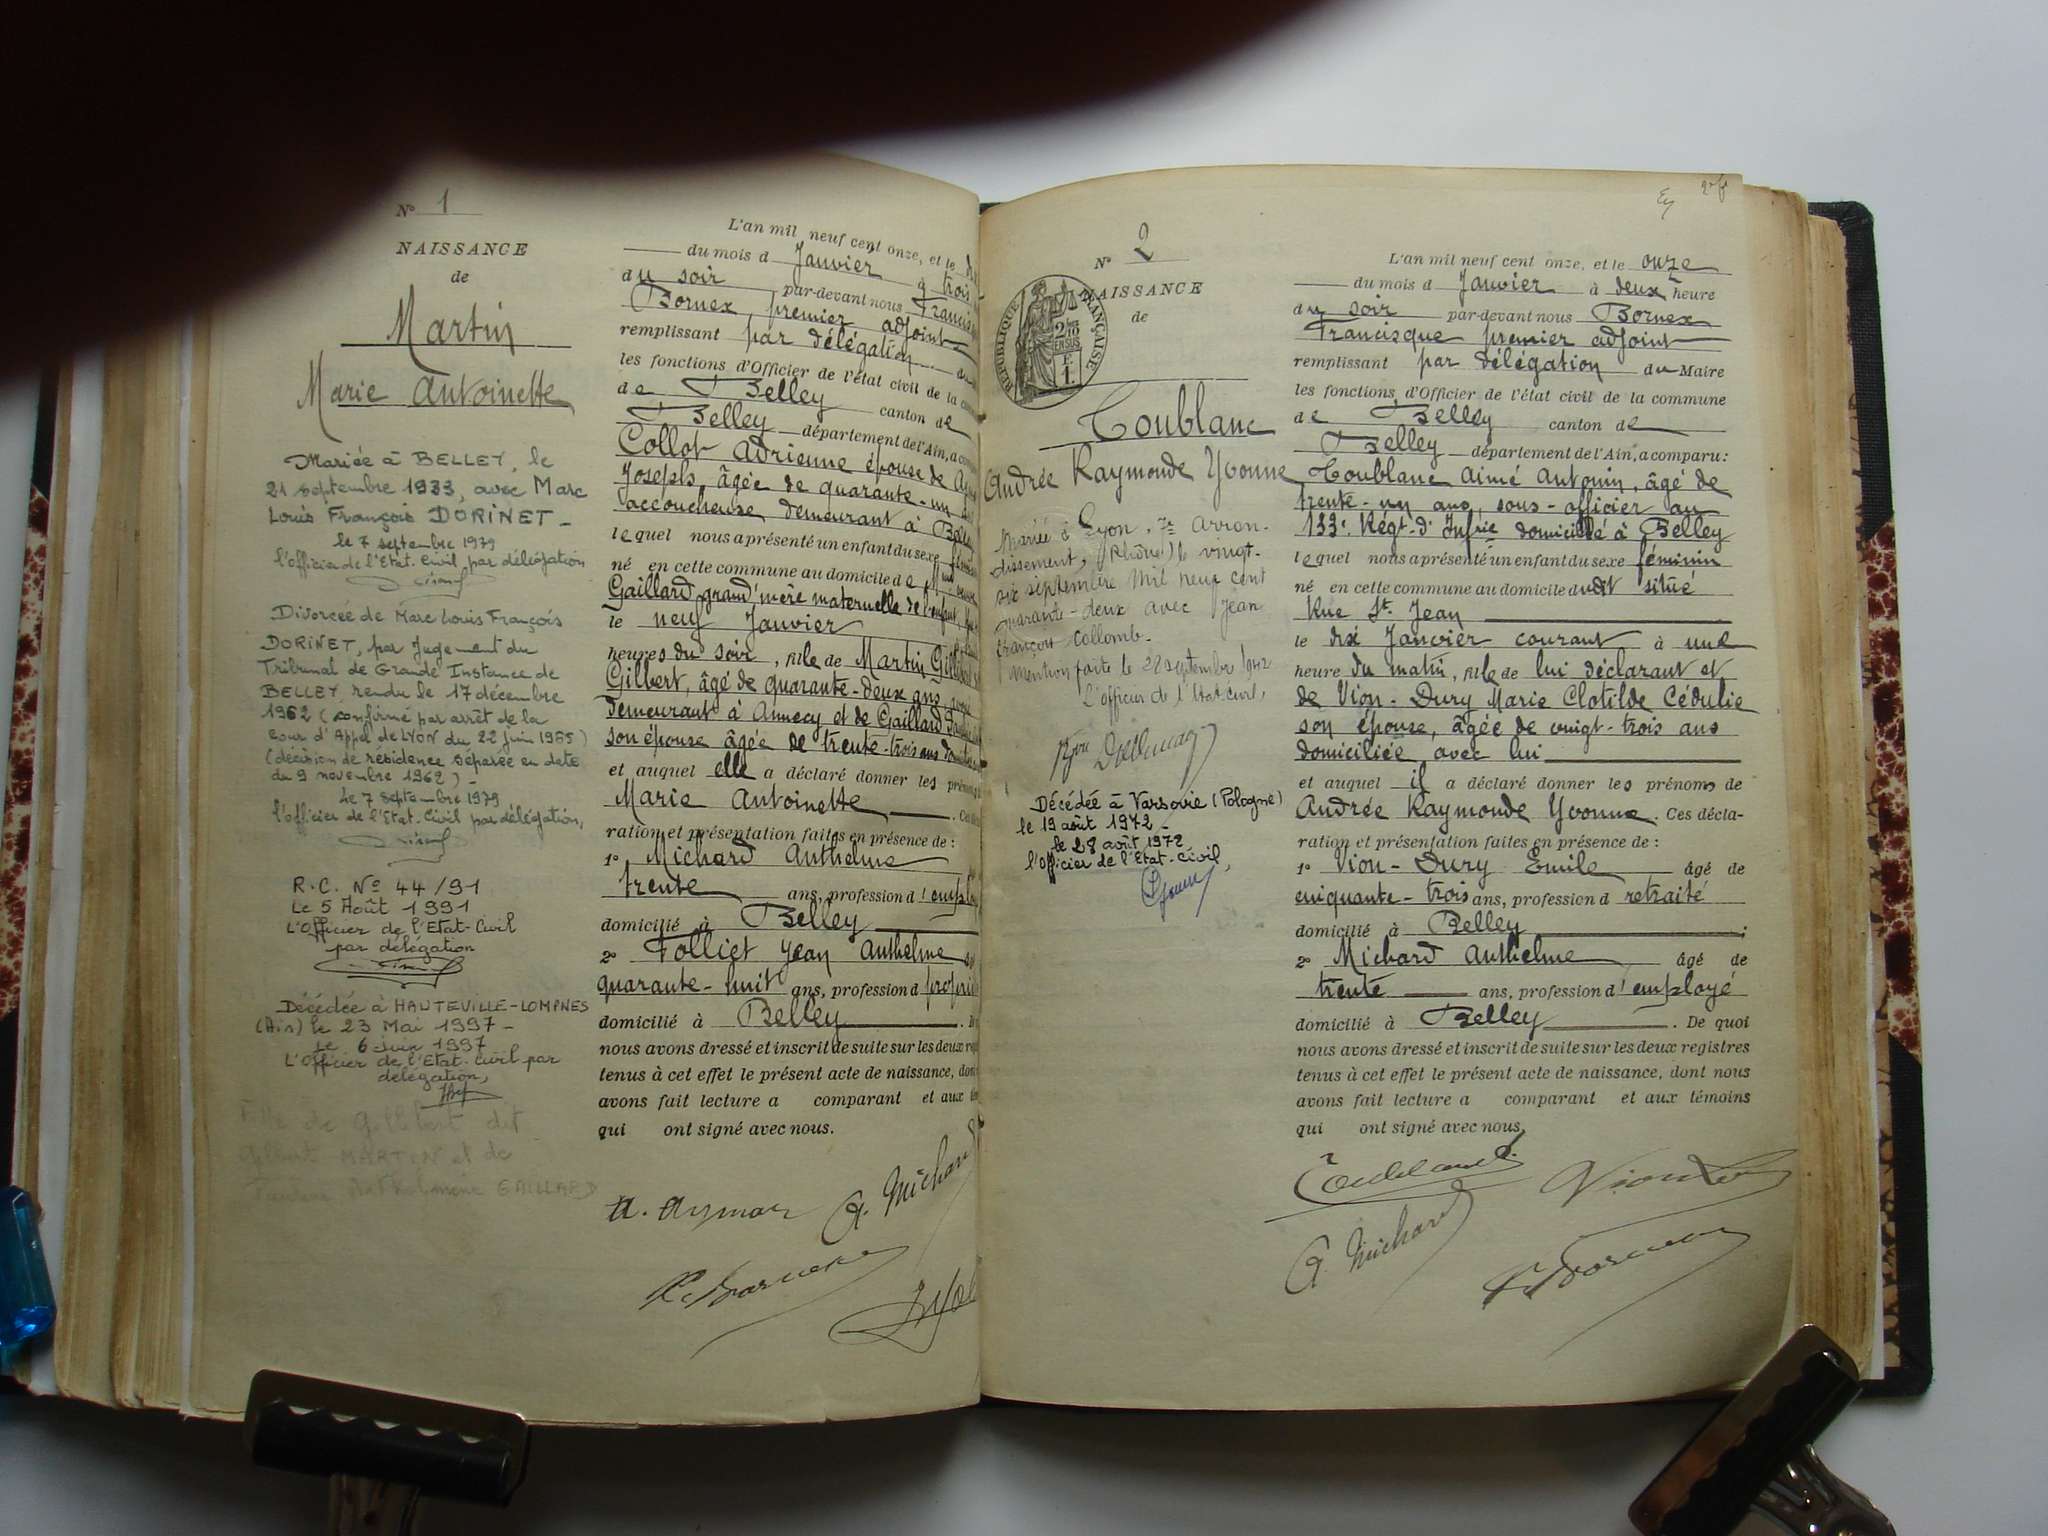 N° 1
NAISSANCE
de
Martin
Marie Antoinette
Mariée à BELLEY, le
21 septembre 1933, avec Marc
Louis François DORINET_
le 7 septembre 1979
l'officier de l'Etat-Civil par délégation
Divorcée de Marc Louis François
DORINET, par Jugement du
Tribunal de Grande Instance de
BELLEY rendu le 17 décembre
1962 (confirmé par arrêt de la
Cour d'Appel de LYON du 22 juin 1965)
(décision de résidence séparée en date
du 9 novembre 1962)_
Le 7 septembre 1979
l'officier de l'Etat-Civil par délégation,
R.C. N° 44/91
Le 5 Août 1991
L'Officier de l'Etat-Civil
par délégation
Décédée à HAUTEVILLE-LOMPNES
(Ain) le 23 Mai 1997_
Le 6 juin 1997
L'Officier de l'Etat-Civil par
délégation,
de Gilbert dit
Gilbert MARTIN et de
GAILLARD
L'an mil neuf cent onze, et le
du mois d Janvier à trois
du soir par-devant nous Francis
Bornex, premier adjoint
remplissant par délégation du
les fonctions d'Officier de l'état civil de la
de Belley canton de
Belley département de l'Ain, a comparu
Collot Adrienne épouse de
Joseph, âgée de quarante-un
accoucheuse, demeurant à Belley
lequel nous a présenté un enfant du sexe
né en cette commune au domicile de
Gaillard grand'mère maternelle de l'enfant,
le neuf Janvier
heures du soir, fille de Martin
Gilbert, âgé de quarante-deux ans
demeurant à Annecy et de Gaillard
son épouse âgée de trente-trois ans
et auquel elle a déclaré donner les prénoms
Marie Antoinette
ration et présentation faites en présence de :
1° Michard Anthelme
trente ans, profession d'
domicilié à Belley
2° Folliet Jean Anthelme
quarante-huit ans, profession d
domicilié à Belley
nous avons dressé et inscrit de suite sur les deux
tenus à cet effet le présent acte de naissance,
avons fait lecture a comparant et aux
qui ont signé avec nous.
A. Aymar A. Michard
2e f
N° 2
NAISSANCE
de
RÉPUBLIQUE FRANÇAISE
Toublanc
Andrée Raymonde Yvonne
Mariée à Lyon, 7e arron-
dissement, (Rhône) le vingt-
six septembre mil neuf cent
quarante-deux avec Jean
François Collomb.
Mention faite le 28 septembre 1942
L'officier de l'état-civil,
Décédée à Varsovie (Pologne)
le 19 août 1972_
le 28 août 1972
l'Officier de l'Etat-Civil,
L'an mil neuf cent onze, et le onze
du mois d Janvier à deux heure
du soir par-devant nous Bornex
Francisque premier adjoint
remplissant par délégation du Maire
les fonctions d'Officier de l'état civil de la commune
de Belley canton de
Belley département de l'Ain, a comparu :
Toublanc Aimé Antonin, âgé de
trente-un ans, sous-officier au
133e Régt-d'Infrie domicilié à Belley
lequel nous a présenté un enfant du sexe féminin
né en cette commune au domicile dudt situé
Rue St Jean
le dix Janvier courant à une
heure du matin, fille de lui déclarant et
de Vion-Dury Marie Clotilde Cédulie
son épouse, âgée de vingt-trois ans
domiciliée avec lui
et auquel il a déclaré donner les prénoms de
Andrée Raymonde Yvonne. Ces décla-
ration et présentation faites en présence de :
1° Vion-Dury Emile âgé de
cinquante-trois ans, profession d retraité
domicilié à Belley ;
2° Michard Anthelme âgé de
trente ans, profession d'employé
domicilié à Belley . De quoi
nous avons dressé et inscrit de suite sur les deux registres
tenus à cet effet le présent acte de naissance, dont nous
avons fait lecture a comparant et aux témoins
qui ont signé avec nous.
Toublanc
A. Michard